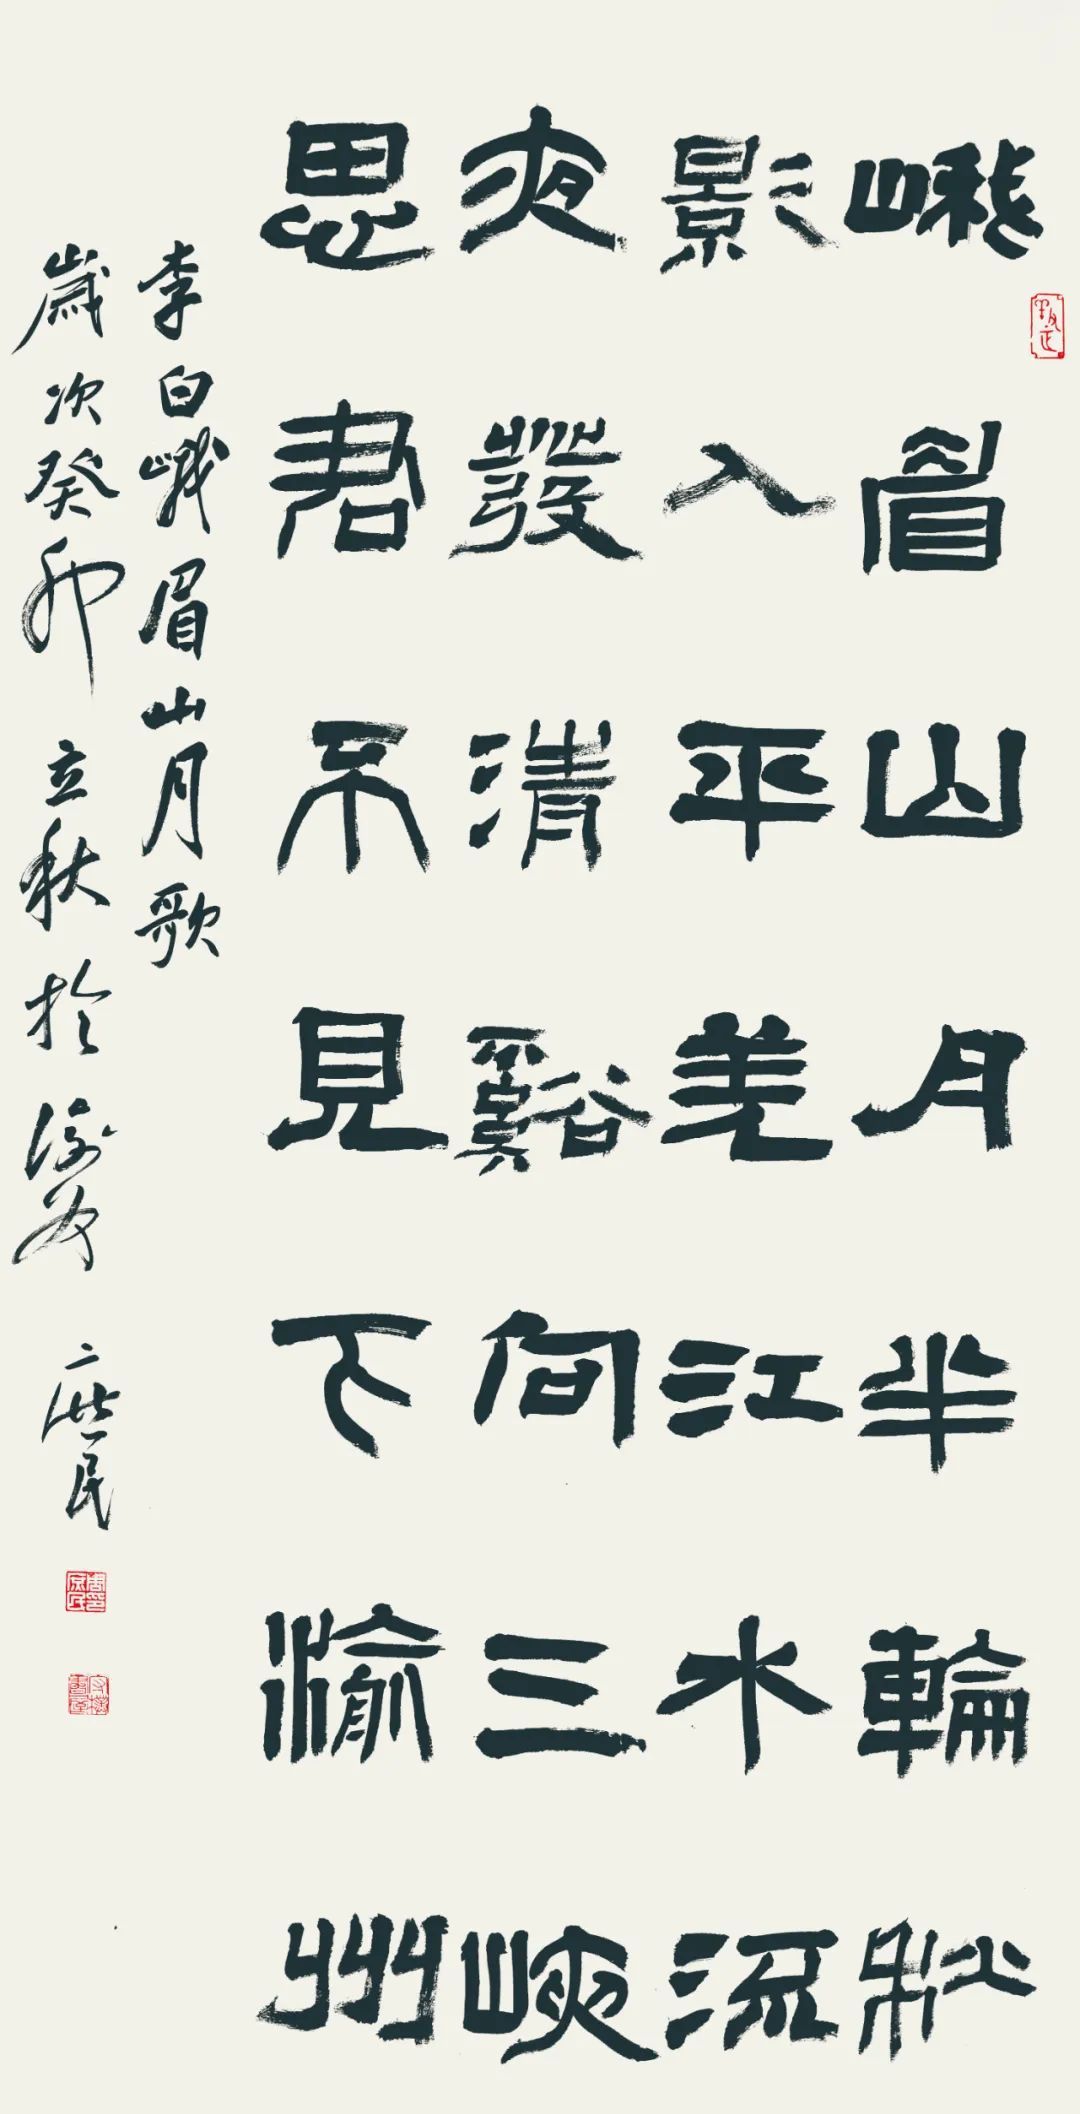 峨眉山月半輪秋
影入平羌江水流
夜發清谿向三峽
思君不見下渝州
李白峨眉山月歌
歲次癸卯立秋於渝州庶民